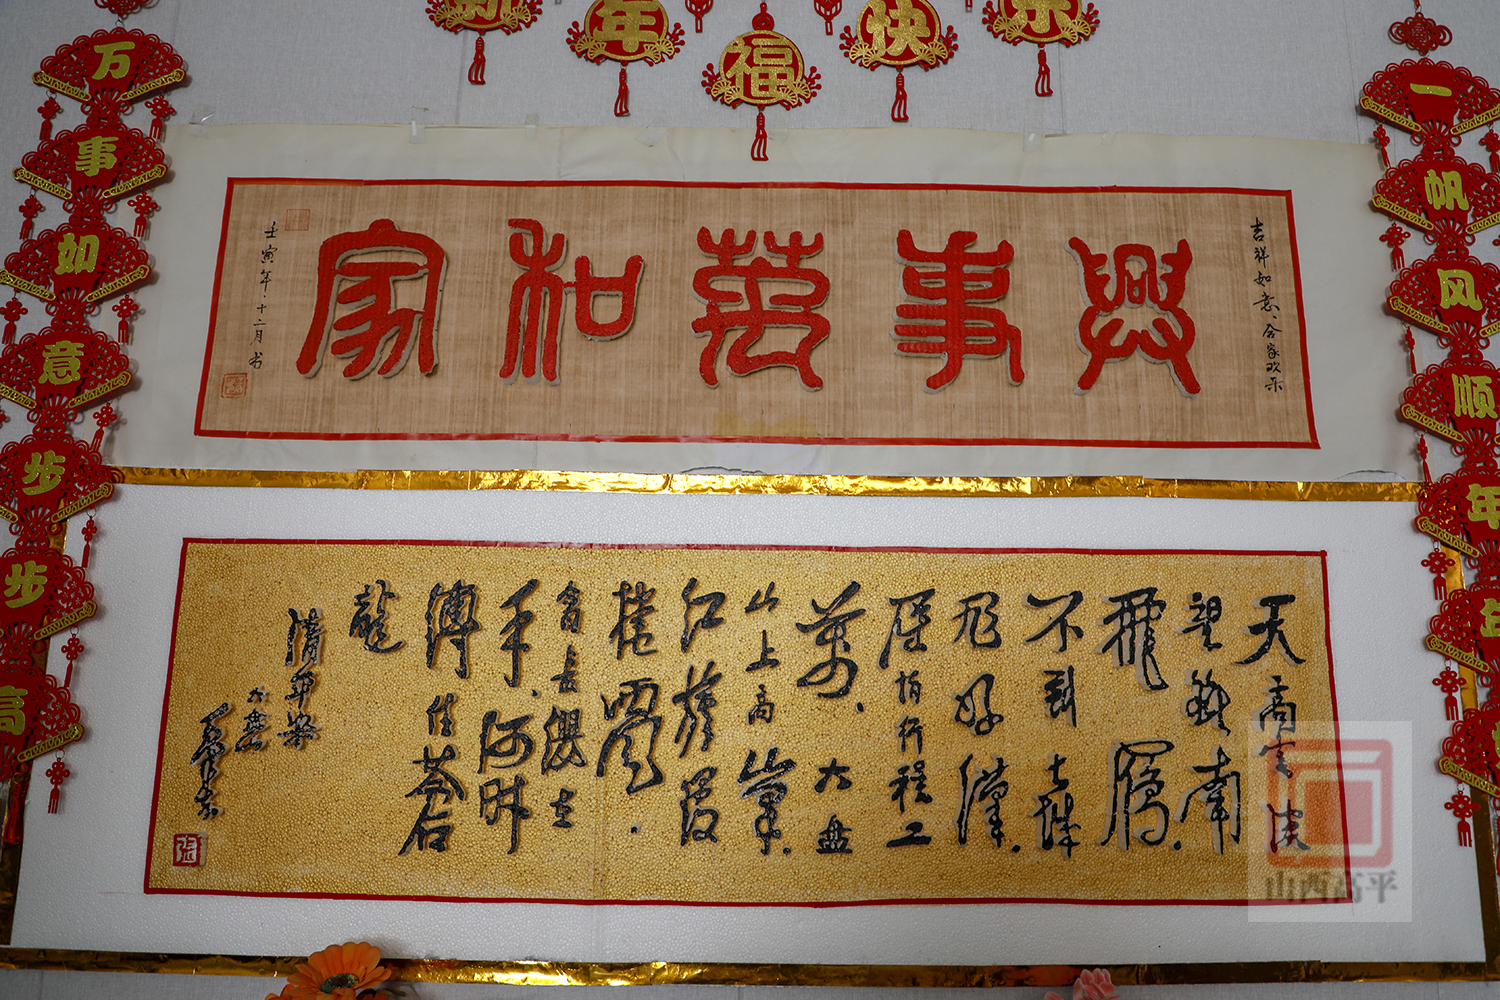 新年福快乐
万事如意步步高
一帆风顺年年
家和萬事興
吉祥如意、合家欢乐
壬寅年十二月书
天高云淡
望断南
飛雁
不到长城
非好漢
屈指行程二
萬。六盘
山上高峰
红旗漫
捲西風
今日长缨在
手、何时
缚住苍
龍
清平樂
六盘山
毛泽东
山西高平